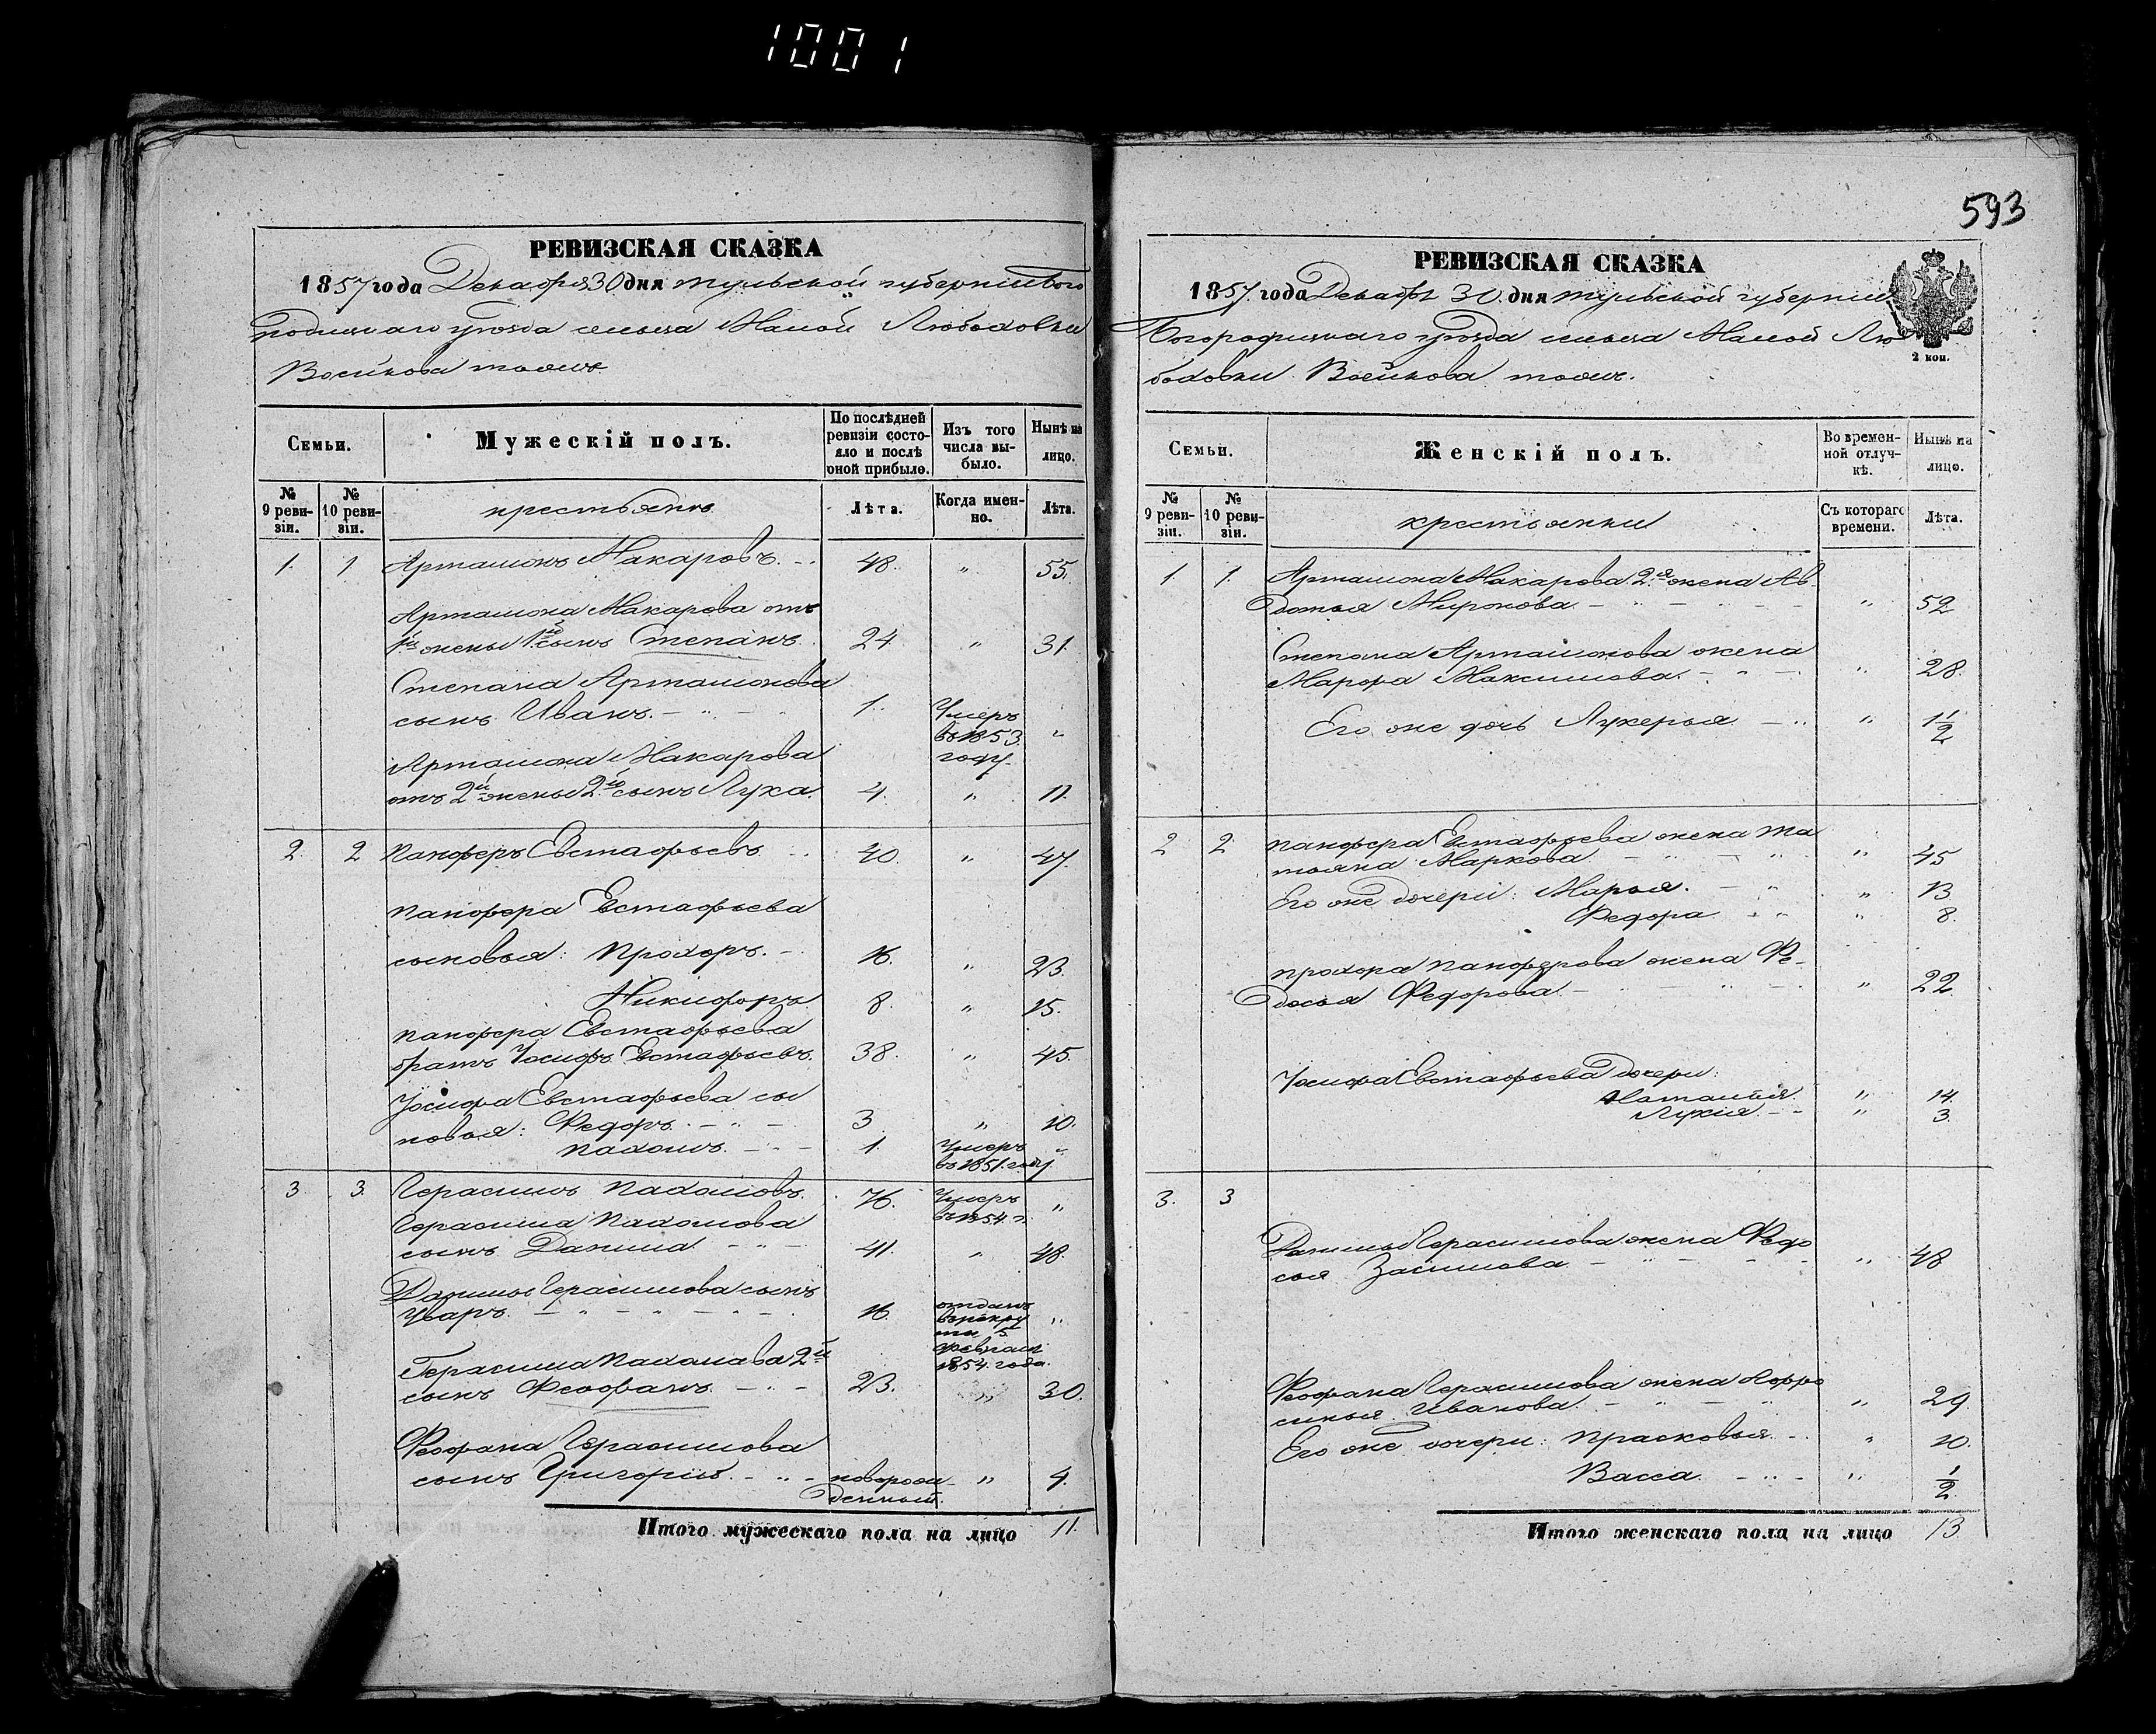 1001
593
РЕВИЗСКАЯ СКАЗКА
1857 года Декабря 30 дня Тульской губерніи Бого
родицкаго уѣзда сельца Малой
Воейкова тожъ
Семьи.
Мужескій полъ.
По послѣдней
ревизіи состо-
яло и послѣ
оной прибыло.
Изъ того
числа вы-
было.
Нынѣ на
лицо.
№
9 реви-
зіи.
№
10 реви-
зіи.
крестьянъ
Лѣта.
Когда имен-
но.
Лѣта.
1. 1 Артамонъ Макаровъ. 48. " 55.
Артамона Макарова отъ
1й жены 1й сынъ Степанъ 24 " 31.
Степана Артамонова
сынъ Иванъ. 1. Умеръ
въ 1853. "
году.
Артамона Макарова
отъ 2й жены 2й сынъ Лука. 4. " 11.
2. 2 Панферъ Евстафьевъ 40. " 47.
Панфера Евстафьева
сыновья: Прохоръ. 16. " 23.
Никифоръ 8. " 15.
Панфера Евстафьева
братъ Іосифъ Евстафьевъ. 38. " 45.
Іосифа Евстафьева сы
новья: Федоръ. 3 " 10.
Пахомъ. 1. Умеръ "
въ 1851. году.
3 3. Герасимъ Пахомовъ. 76. Умеръ
въ 1854. г. "
Герасима Пахомова
сынъ Данила 41. " 48.
Данилы Герасимова сынъ
Уваръ. 16. отданъ
въ рекру "
ты 5.
февраля
1854. года.
Герасима Пахомова 2й
сынъ Феофанъ. 23. " 30.
Феофана Герасимова
сынъ Григорій. новорож " 4.
денный.
Итого мужескаго пола на лицо 11.
РЕВИЗСКАЯ СКАЗКА
1857. года Декабр 30. дня Тульской губерніи
Богородицкаго уѣзда сельца Малой
Воейкова тожъ.
2 коп.
Семьи.
Женскій полъ.
Во времен-
ной отлуч-
кѣ.
Нынѣ на
лицо.
№
9 реви-
зіи.
№
10 реви-
зіи.
крестьянки
Съ котораго
времени.
Лѣта.
1. 1. Артамона Макарова 2я жена Ав-
дотья Миронова " 52
Степана Артамонова жена
Марфа Максимова. " 28.
Его же дочь Лукерья " 1 1/2
2 2 Панфера Евстафьева жена Та
тьяна Маркова. " 45
Его же дочери: Марья. " 13
Федора " 8.
Прохора Панферова жена Фе-
досья Федорова. " 22.
Іосифа Евстафьева дочери:
Наталія. " 14.
Лукія " 3.
3. 3
Данилы Герасимова жена Федо
сья " 48
Феофана Герасимова жена Ефро
синья Иванова. " 29
Его же дочери: Прасковья " 10.
Васса. " 1/2
Итого женскаго пола на лицо 13.